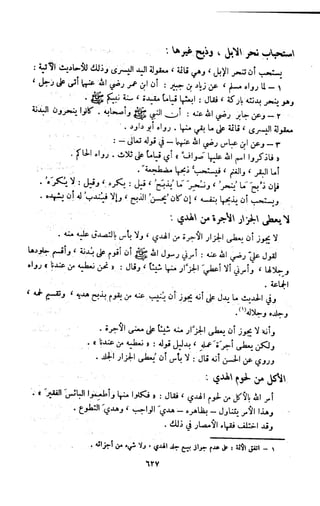 استحباب نحر الابل ، وذبح غيرها :
يستحب أن تنحر الإبل ، وهي قائمة ، معقولة اليد اليسرى وذلك للأحاديث الآتية :
١ - لما رواه مسلم ، عن زياد بن جبير : أن ابن عمر رضي الله عنهما أتى على رجل ،
وهو ينحر بدنته باركة ، فقال : ابعثها قياما مقيدة ، سنة نبيكم ﷺ .
٢ - وعن جابر رضي الله عنه : أن النبي ﷺ وأصحابه . كانوا ينحرون البدنة
معقولة اليسرى ، قائمة على ما بقي منها . رواه أبو داود .
٣ - وعن ابن عباس رضي الله عنهما - في قوله تعالى - :
« فاذكروا اسم الله عليها صواف » أي قياما على ثلاث . رواه الحاكم .
أما البقر ، والغنم ، فيستحب ذبحها مضطجعة .
فإن ذبح ما ينحر ، ونحر ما يذبح ، قيل : يكره ، وقيل : لا يكره .
ويستحب أن يذبحها بنفسه ، إن كان يحسن الذبح ، وإلا فيندب له أن يشهده .
لا يعطى الجزار الأجرة من الهدي :
لا يجوز أن يعطى الجزار الأجرة من الهدي ، ولا بأس بالتصدق عليه منه .
لقول علي رضي الله عنه : أمرني رسول الله ﷺ أن أقوم على بدنه ، وأقسم جلودها
وجلالها ، وأمرني ألا أعطي الجزار منها شيئا ، وقال : « نحن نعطيه من عندنا » رواه
الجماعة .
وفي الحديث ما يدل على أنه يجوز أن ينيب عنه من يقوم بذبح هديه ، وتقسيم لحمه ،
وجلده وجلاله (١) .
وأنه لا يجوز أن يعطى الجزار منه شيئا على معنى الأجرة .
ولكن يعطى أجرة عمله ، بدليل قوله : « نعطيه من عندنا » .
وروي عن الحسن أنه قال : لا بأس أن يعطى الجزار الجلد .
الأكل من لحوم الهدي :
أمر الله بالأكل من لحوم الهدي ، فقال : « فكلوا منها وأطعموا البائس الفقير » .
وهذا الأمر يتناول - بظاهره - هدي الواجب ، وهدي التطوع .
وقد اختلف فقهاء الأمصار في ذلك .
١ - اتفق الأئمة : على عدم جواز بيع جلد الهدي ، ولا شيء من أجزائه .
٦٢٧